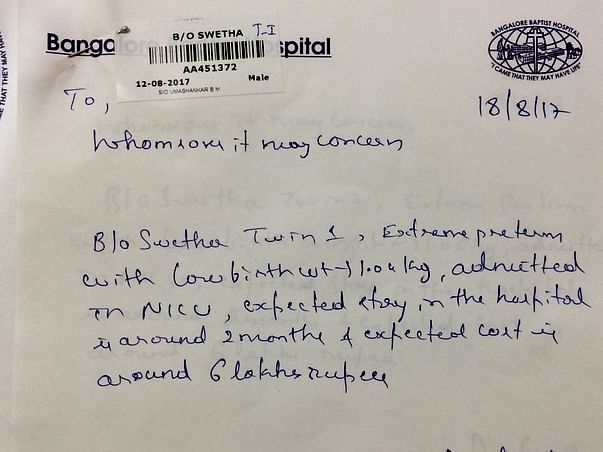 Banga
spital
B/O SWETHA T-I
AA451372
12-08-2017 Male
S/O UMASHANKAR B M
BANGALORE BAPTIST HOSPITAL
"I CAME THAT THEY MAY HAVE LIFE"
18/8/17
To,
Whomsoever it may concern
B/o Swetha Twin 1, Extreme preterm
with low birth wt → 1.04 kg, admitted
in NICU, expected stay in the hospital
is around 2 months & expected cost is
around 6 lakhs rupees